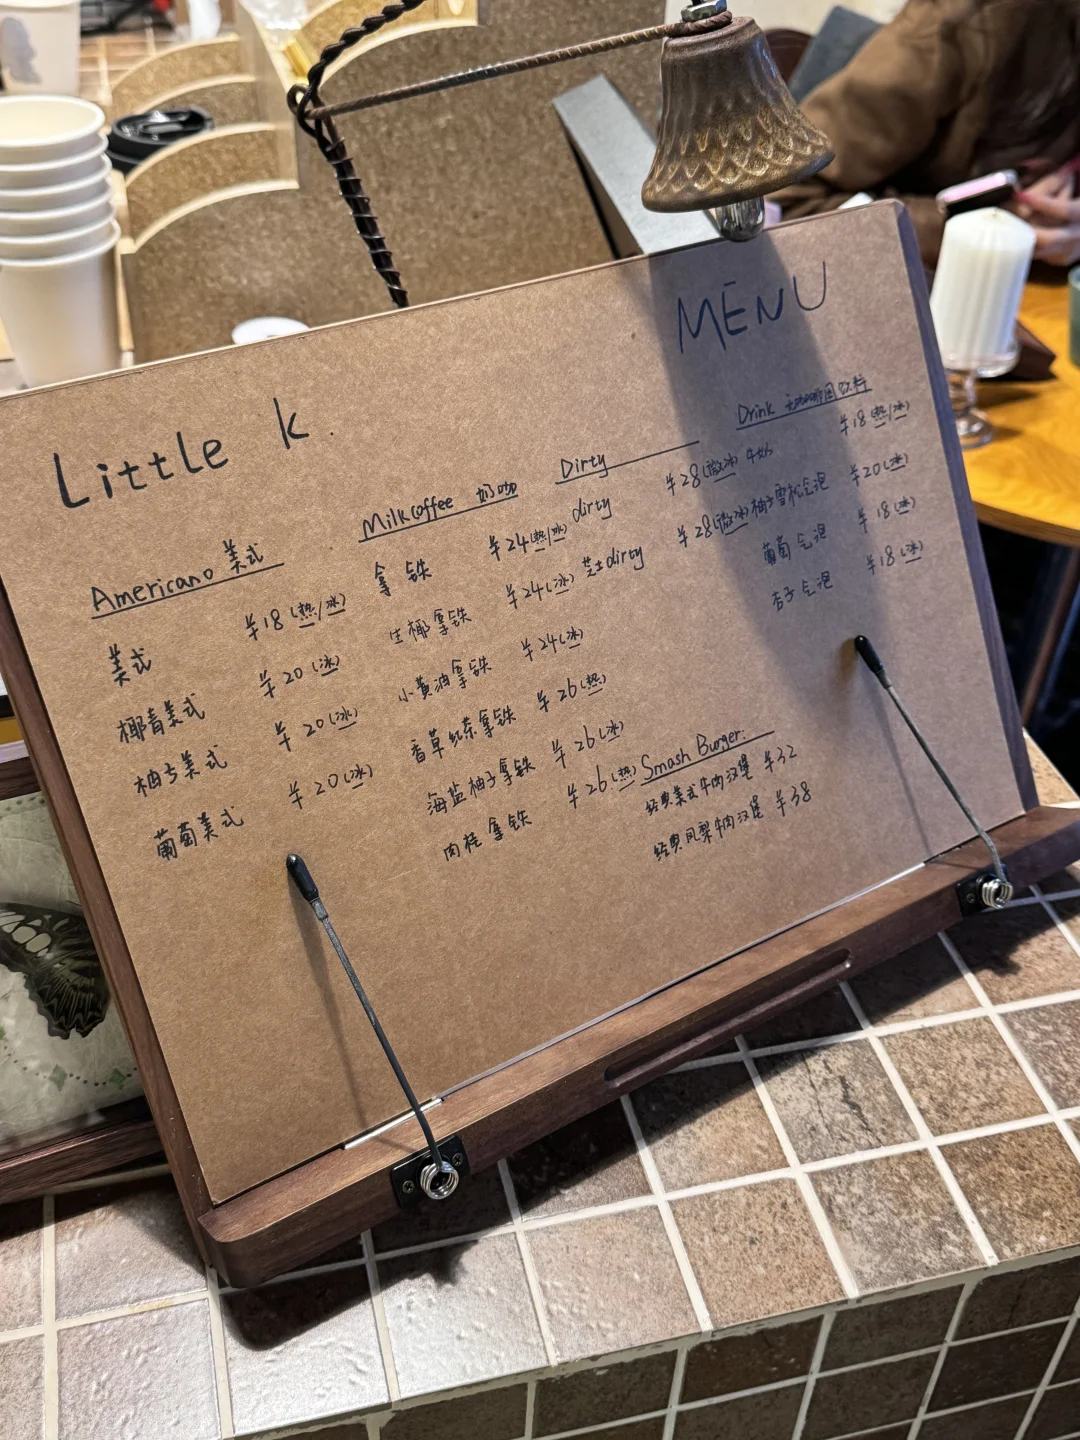 Little k.
MENU
Americano 美式
美式 ¥18(热/冰)
椰青美式 ¥20(冰)
柚子美式 ¥20(冰)
葡萄美式 ¥20(冰)
Milk coffee 奶咖
拿铁 ¥24(热/冰)
生椰拿铁 ¥24(冰)
小黄油拿铁 ¥24(冰)
香草红茶拿铁 ¥26(热)
海盐柚子拿铁 ¥26(冰)
肉桂拿铁 ¥26(热)
Dirty
dirty ¥28(微冰)
芝士dirty ¥28(微冰)
Smash Burger:
经典美式牛肉汉堡 ¥32
经典凤梨牛肉汉堡 ¥38
Drink 无咖啡因饮料
牛奶 ¥18(热/冰)
柚子雪松气泡 ¥20(冰)
葡萄气泡 ¥18(冰)
杏子气泡 ¥18(冰)